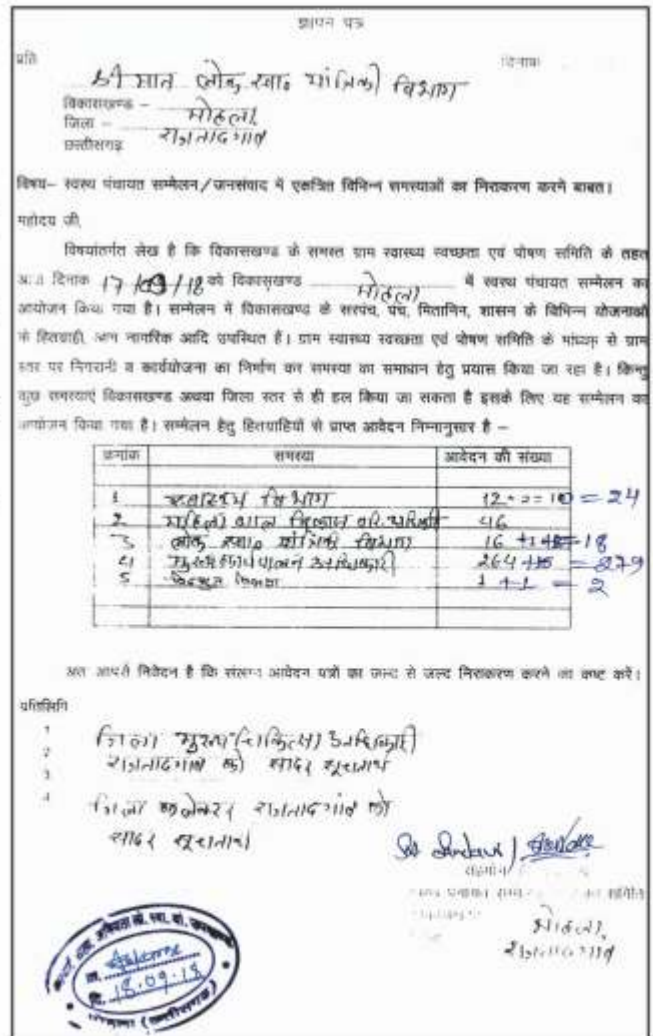 ज्ञापन पत्र
प्रति दिनांक
श्री मान लोक स्वा० यांत्रिकी विभाग
विकासखण्ड – मोहला
जिला – राजनांदगांव
छत्तीसगढ़
विषय– स्वस्थ पंचायत सम्मेलन/जनसंवाद में एकत्रित विभिन्न समस्याओं का निराकरण करने बाबत।
महोदय जी,
विषयांतर्गत लेख है कि विकासखण्ड के समस्त ग्राम स्वास्थ्य स्वच्छता एवं पोषण समिति के तहत
आज दिनांक 17/09/18 को विकासखण्ड मोहला में स्वस्थ पंचायत सम्मेलन का
आयोजन किया गया है। सम्मेलन में विकासखण्ड के सरपंच, पंच, मितानिन, शासन के विभिन्न योजनाओं
के हितग्राही, आम नागरिक आदि उपस्थित हैं। ग्राम स्वास्थ्य स्वच्छता एवं पोषण समिति के माध्यम से ग्राम
स्तर पर निगरानी व कार्ययोजना का निर्माण कर समस्या का समाधान हेतु प्रयास किया जा रहा है। किन्तु
कुछ समस्याएं विकासखण्ड अथवा जिला स्तर से ही हल किया जा सकता है इसके लिए यह सम्मेलन का
आयोजन किया गया है। सम्मेलन हेतु हितग्राहियों से प्राप्त आवेदन निम्नानुसार है –
क्रमांक समस्या आवेदन की संख्या
1 स्वास्थ्य विभाग = 24
2 महिला बाल विकास 46
3 लोक स्वा० यांत्रिकी विभाग 16 = 18
4 मुख्य कार्यपालन अधिकारी 264 = 279
5 विद्युत विभाग 1 + 1 = 2
अतः आपसे निवेदन है कि संलग्न आवेदन पत्रों का जल्द से जल्द निराकरण करने का कष्ट करें।
प्रतिलिपि
1 जिला मुख्य चिकित्सा अधिकारी
2 राजनांदगांव को सादर सूचनार्थ
3
4 जिला कलेक्टर राजनांदगांव को
सादर सूचनार्थ
मोहला,
राजनांदगांव
दि. 18.09.18
(छत्तीसगढ़)